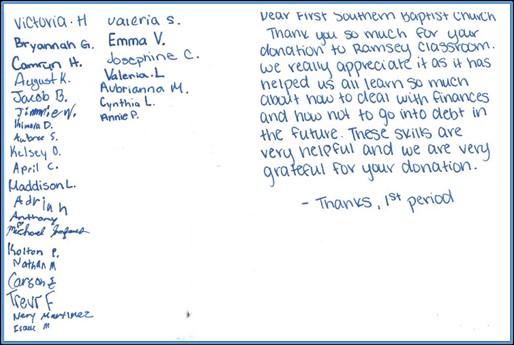 Victoria. H
Bryannah G.
Camryn H.
August K.
Jacob B.
Jimmie W.
Kimora D.
Aubree S.
Kelsey O.
April C.
Maddison L.
Adrian
Anthony
Michael
Kolton P.
Nathan M
Carson E
Trevr F
Nery Martinez
Isaac M
Valeria S.
Emma V.
Josephine C.
Valeria. L
Aubrianna M.
Cynthia L.
Annie P.
Dear First Southern Baptist Church
Thank you so much for your
donation to Ramsey Classroom.
We really appreciate it as it has
helped us all learn so much
about how to deal with finances
and how not to go into debt in
the future. These skills are
very helpful and we are very
grateful for your donation.
- Thanks, 1st period